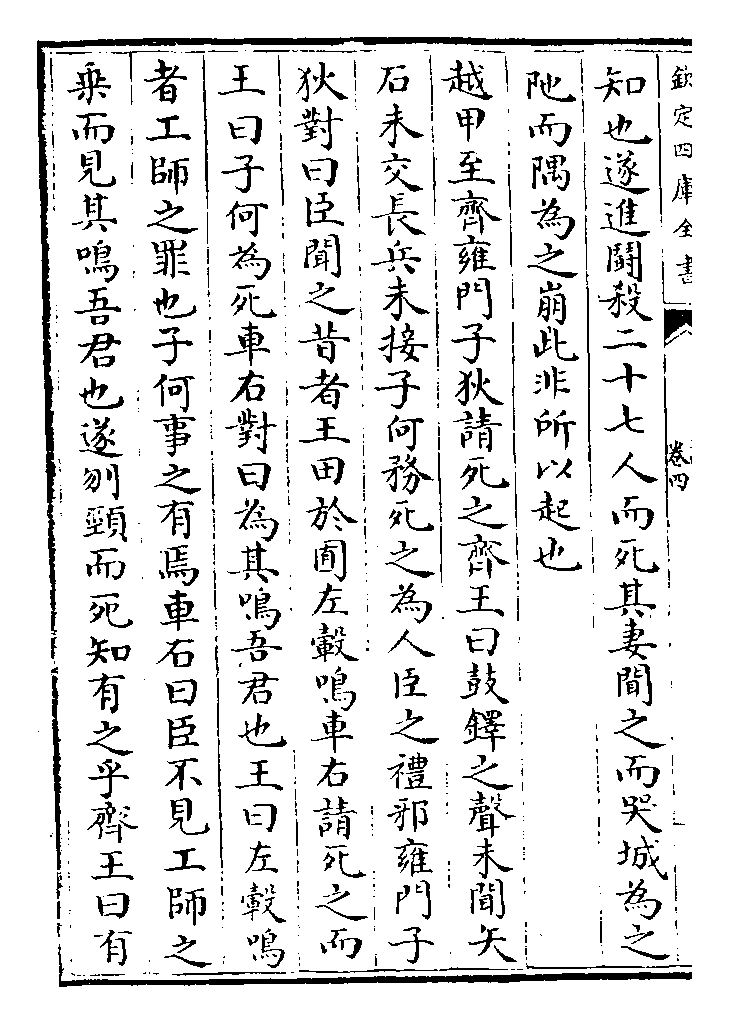 欽定四庫全書
卷四
知也遂進鬭殺二十七人而死其妻聞之而哭城為之
阤而隅為之崩此非所以起也
越甲至齊雍門子狄請死之齊王曰鼓鐸之聲未聞矢
石未交長兵未接子何務死之為人臣之禮邪雍門子
狄對曰臣聞之昔者王田於囿左轂鳴車右請死之而
王曰子何為死車右對曰為其鳴吾君也王曰左轂鳴
者工師之罪也子何事之有焉車右曰臣不見工師之
乗而見其鳴吾君也遂刎頸而死知有之乎齊王曰有